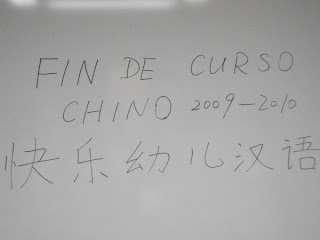 FIN DE CURSO
CHINO 2009-2010
快乐幼儿汉语